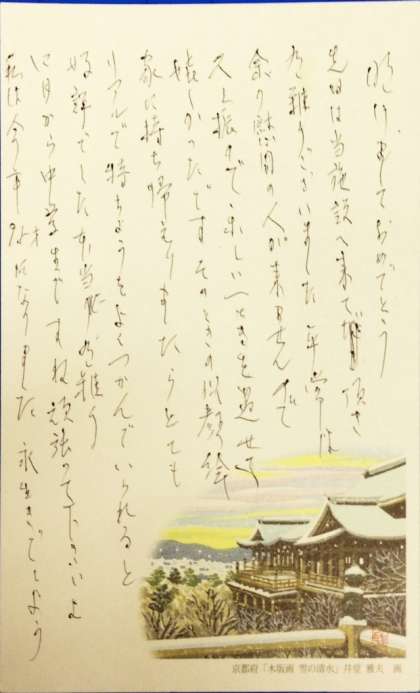 明けましておめでとう
先日は当施設へ来て頂き
有難うございました 平常は
余り慰問の人が来ませんので
久し振りで楽しい一ときを過せて
嬉しかったです そのときの似顔絵
家に持ち帰えりましたらとても
リアルで特ちょうをよくつかんでいられると
好評でした 本当に有難う
四月から中学生ですね 頑張って下さいよ
私は今年 才になりました 永生きでしょう
京都府「木版画 雪の清水」井堂 雅夫 画